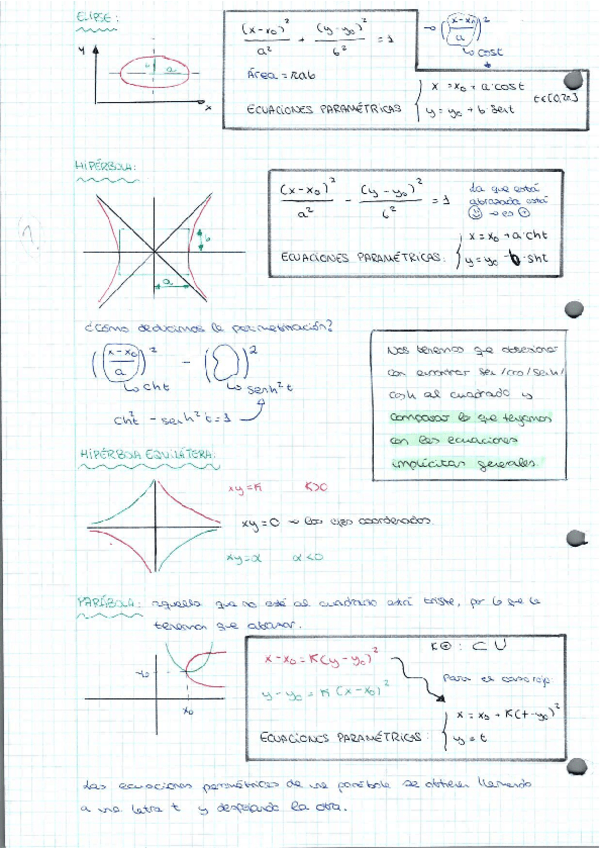 ELIPSE:
y
b
a
x
(x-x0)²/a² + (y-y0)²/b² = 1
→ ((x-x0)/a)²
↳ cost
Área = πab
ECUACIONES PARAMÉTRICAS { x = x0 + a·cost
y = y0 + b·sent
t∈[0,2π]
HIPÉRBOLA:
b
a
(x-x0)²/a² - (y-y0)²/b² = 1
La que está
abrazada está
☺ → es ⊕
ECUACIONES PARAMÉTRICAS: { x = x0 + a·cht
y = y0 + b·sht
¿Cómo deducimos la parametrización?
((x-x0)/a)² - ( )²
↳ cht ↳ senh²t
ch²t - senh²t = 1
Nos tenemos que obsesionar
con encontrar sen/cos/senh/
cosh al cuadrado y
comparar lo que tengamos
con las ecuaciones
implícitas generales.
HIPÉRBOLA EQUILÁTERA:
xy = K K>0
xy = 0 → los ejes coordenados.
xy = α α<0
PARÁBOLA: aquella que no está al cuadrado está triste, por lo que la
tenemos que abrazar.
y0
x0
x-x0 = K(y-y0)²
K⊕: ⊂ ∪
y-y0 = K(x-x0)²
Para el caso rojo
ECUACIONES PARAMÉTRICAS: { x = x0 + K(t-y0)²
y = t
Las ecuaciones paramétricas de una parábola se obtienen llamando
a una letra t y despejando la otra.